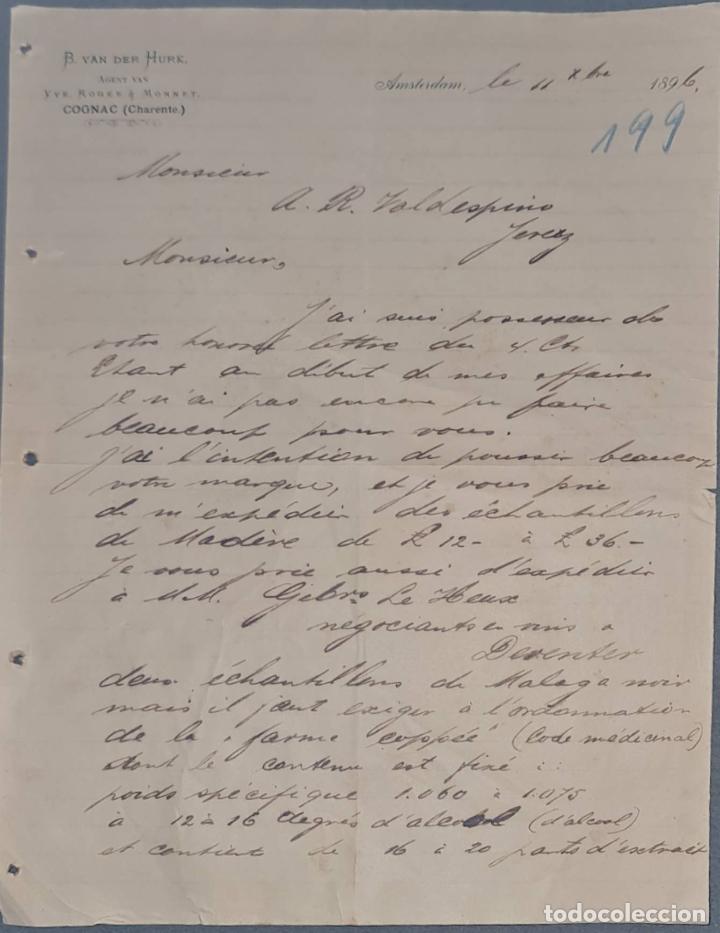 B. VAN DER HURK.
AGENT VAN
VVE ROGÉE & MONNET,
COGNAC (Charente.)
Amsterdam, le 11 Xbre 1896.
199
Monsieur
A. R. Valdespino
Jerez
Monsieur,
J'ai suis possesseur de
votre honoré lettre du 4. Ct.
Etant au début de mes affaires
je n'ai pas encore pu faire
beaucoup pour vous.
J'ai l'intention de poussir beaucoup
votre marque, et je vous prie
de m'expédier des échantillons
de Madère de £ 12- à £ 36.-
Je vous prie aussi d'expédier
à M.M. Gebrs Le Heux
négociants en vins a
Deventer
deux échantillons de Malaga noir
mais il faut exiger à l'ordonnation
de la "farme coppée" (Code médecinal)
dont le contenu est fixé :
poids spécifique 1.060 à 1.075
à 12 à 16 degrés d'alcohol (d'alcool)
et contient de 16 à 20 parts d'extrait
todocoleccion
todocoleccion.net